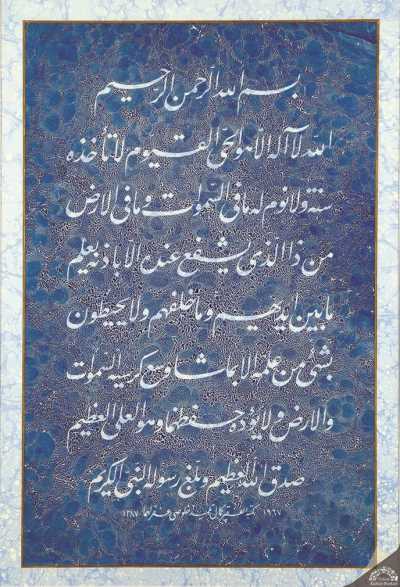 بسم الله الرحمن الرحيم
الله لا اله الا هو الحى القيوم لا تأخذه
سنة ولا نوم له ما فى السموات وما فى الارض
من ذا الذى يشفع عنده الا باذنه يعلم
ما بين ايديهم وما خلفهم ولا يحيطون
بشئ من علمه الا بما شاء وسع كرسيه السموات
والارض ولا يؤده حفظهما وهو العلى العظيم
صدق الله العظيم وبلغ رسوله النبى الكريم
١٩٦٧ ١٣٨٧